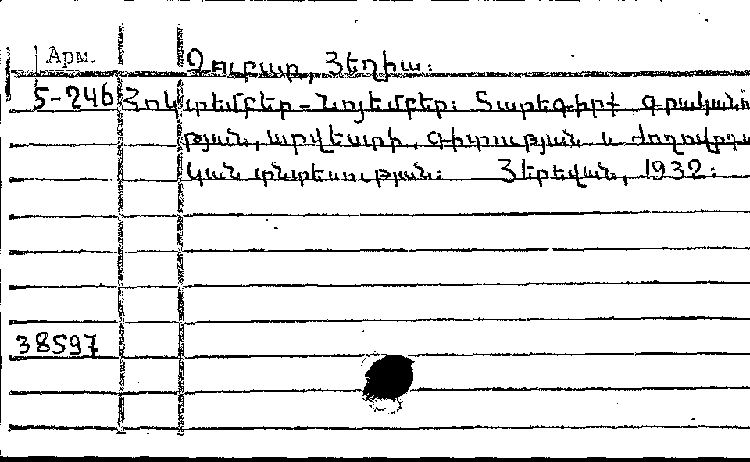 Арм.
Չուբար, Հեղիա:
5-246 Հոկտեմբեր-Նոյեմբեր: Տարեգիրք գրականու
թյան, արվեստի, գիտության և ժողովրդա
կան տնտեսության: Յերեվան, 1932:
38597